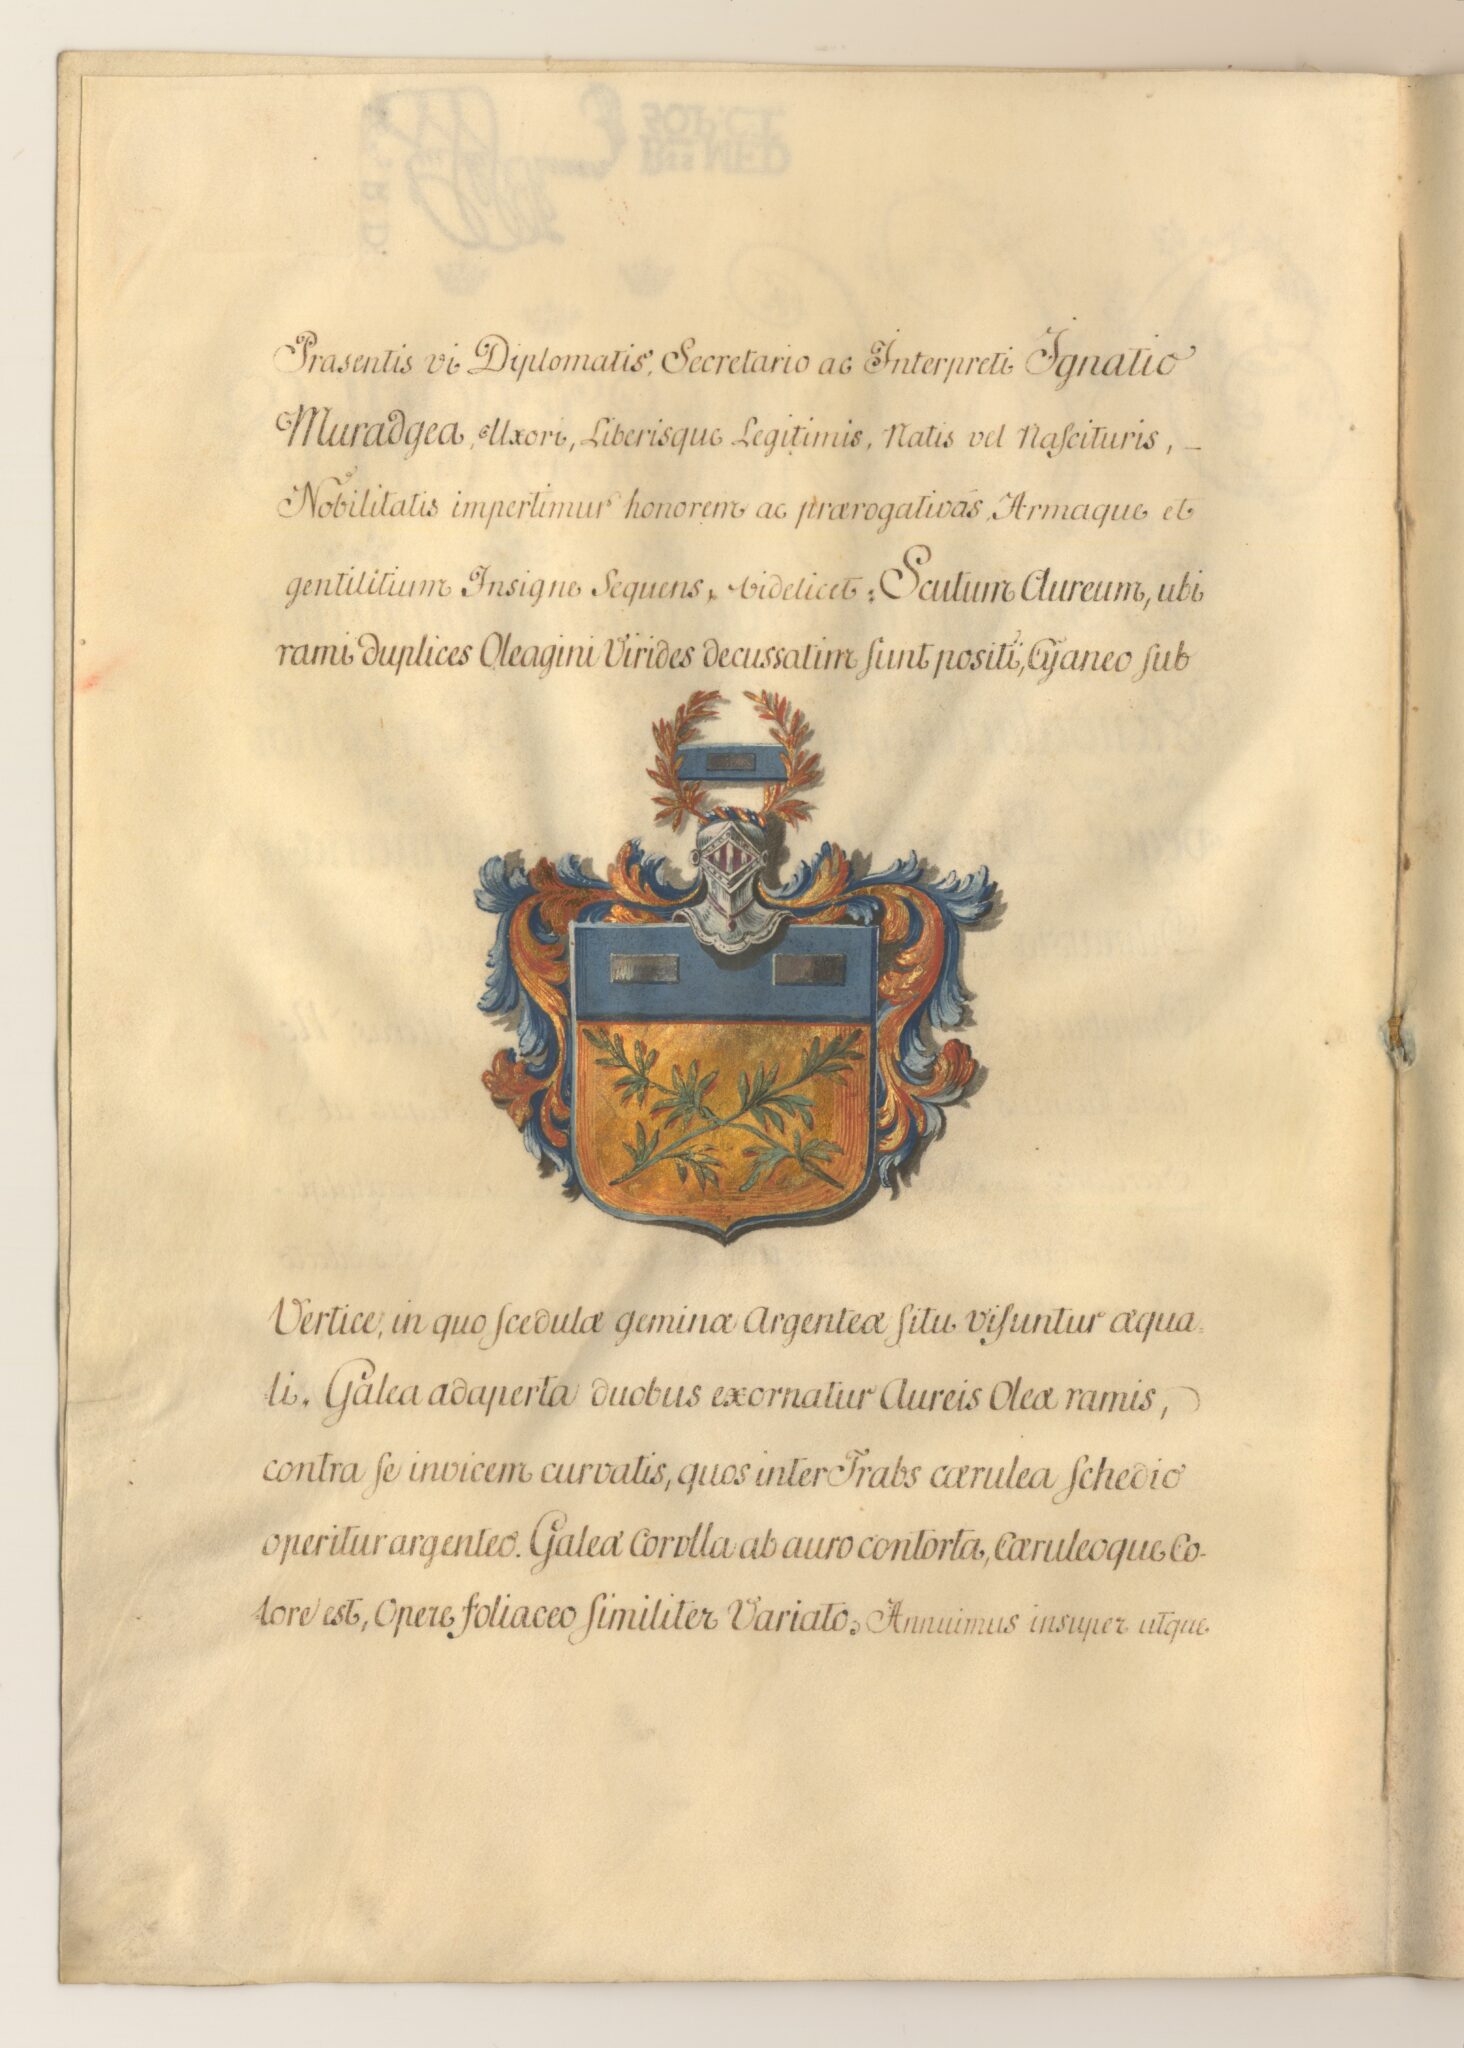 Præsentis vi Diplomatis, Secretario ac Interpreti Ignatio
Muradgea, Uxori, Liberisque Legitimis, Natis vel Naſcituris,
Nobilitatis impertimur honorem ac prærogativas, Armaque et
gentilitium Insigne Sequens, videlicet: Scutum Aureum, ubi
rami duplices Oleagini Virides decussatim ſunt positi, Cÿaneo ſub
Vertice, in quo ſcedulæ geminæ Argenteæ ſitu viſuntur æqua-
li. Galea adaperta duobus exornatur Aureis Oleæ ramis,
contra ſe invicem curvatis, quos inter Trabs cærulea ſchedio
operitur argenteo. Galeæ Corolla ab auro contorta, Cæruleoque Co-
lore est, Opere foliaceo ſimiliter Variato. Annuimus insuper utque